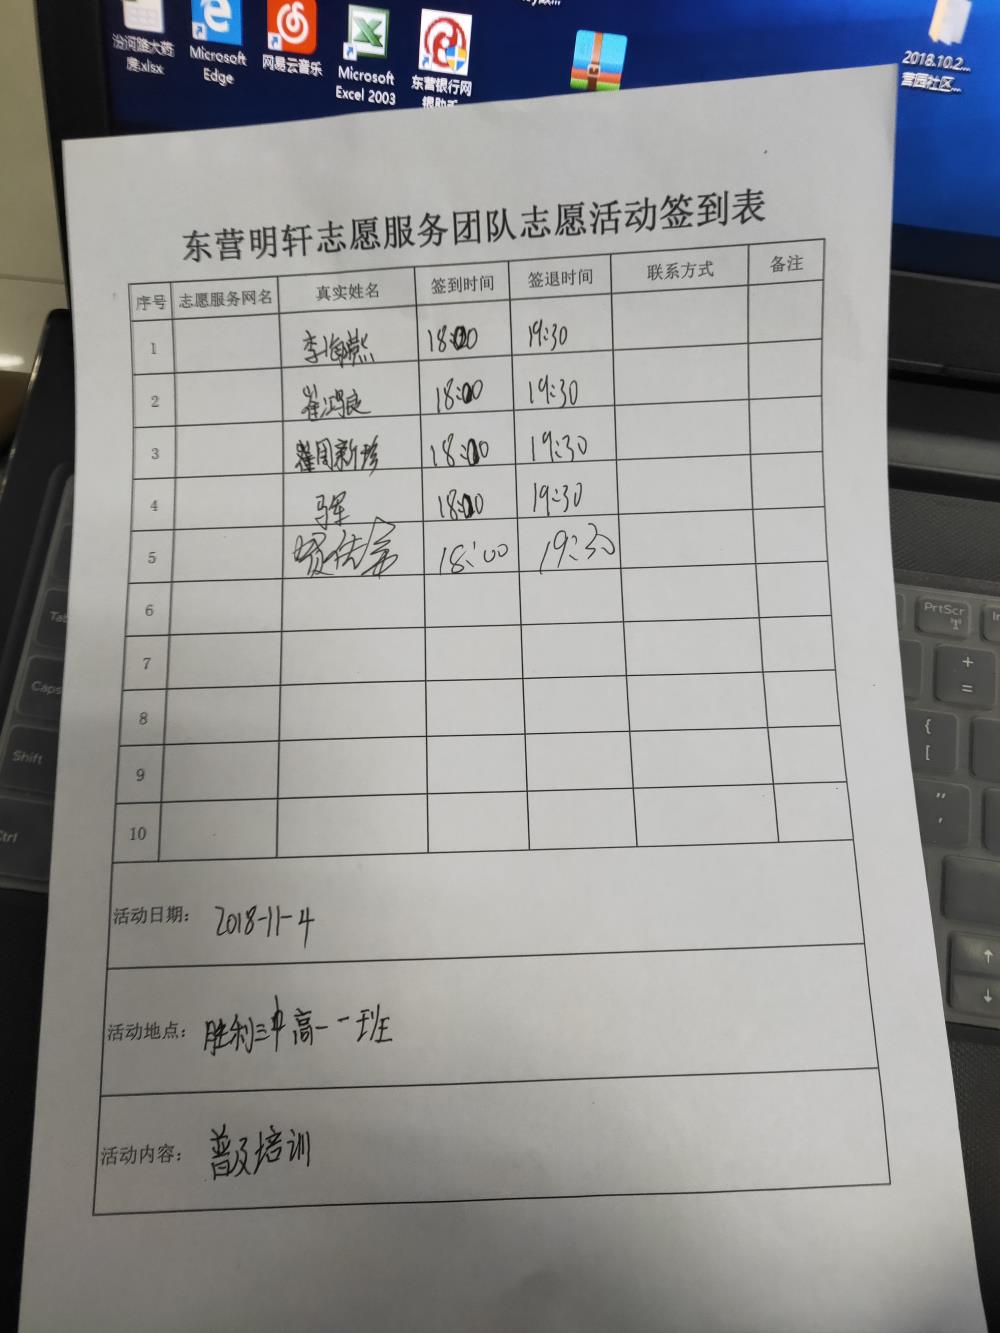 汾河路大药
度.xlsx
Microsoft
Edge
网易云音乐
Microsoft
Excel 2003
东营银行网
银助手
2018.10.2...
营园社区...
东营明轩志愿服务团队志愿活动签到表
序号 志愿服务网名 真实姓名 签到时间 签退时间 联系方式 备注
1 李海燕 18:00 19:30
2 崔鸿良 18:00 19:30
3 周新珍 18:00 19:30
4 马军 18:00 19:30
5 18:00 19:30
6
7
8
9
10
活动日期: 2018-11-4
活动地点: 胜利三中高一一班
活动内容: 普及培训
Tab
Caps
Shift
Ctrl
PrtScr
+
=
{
[
"
'
↑
↓